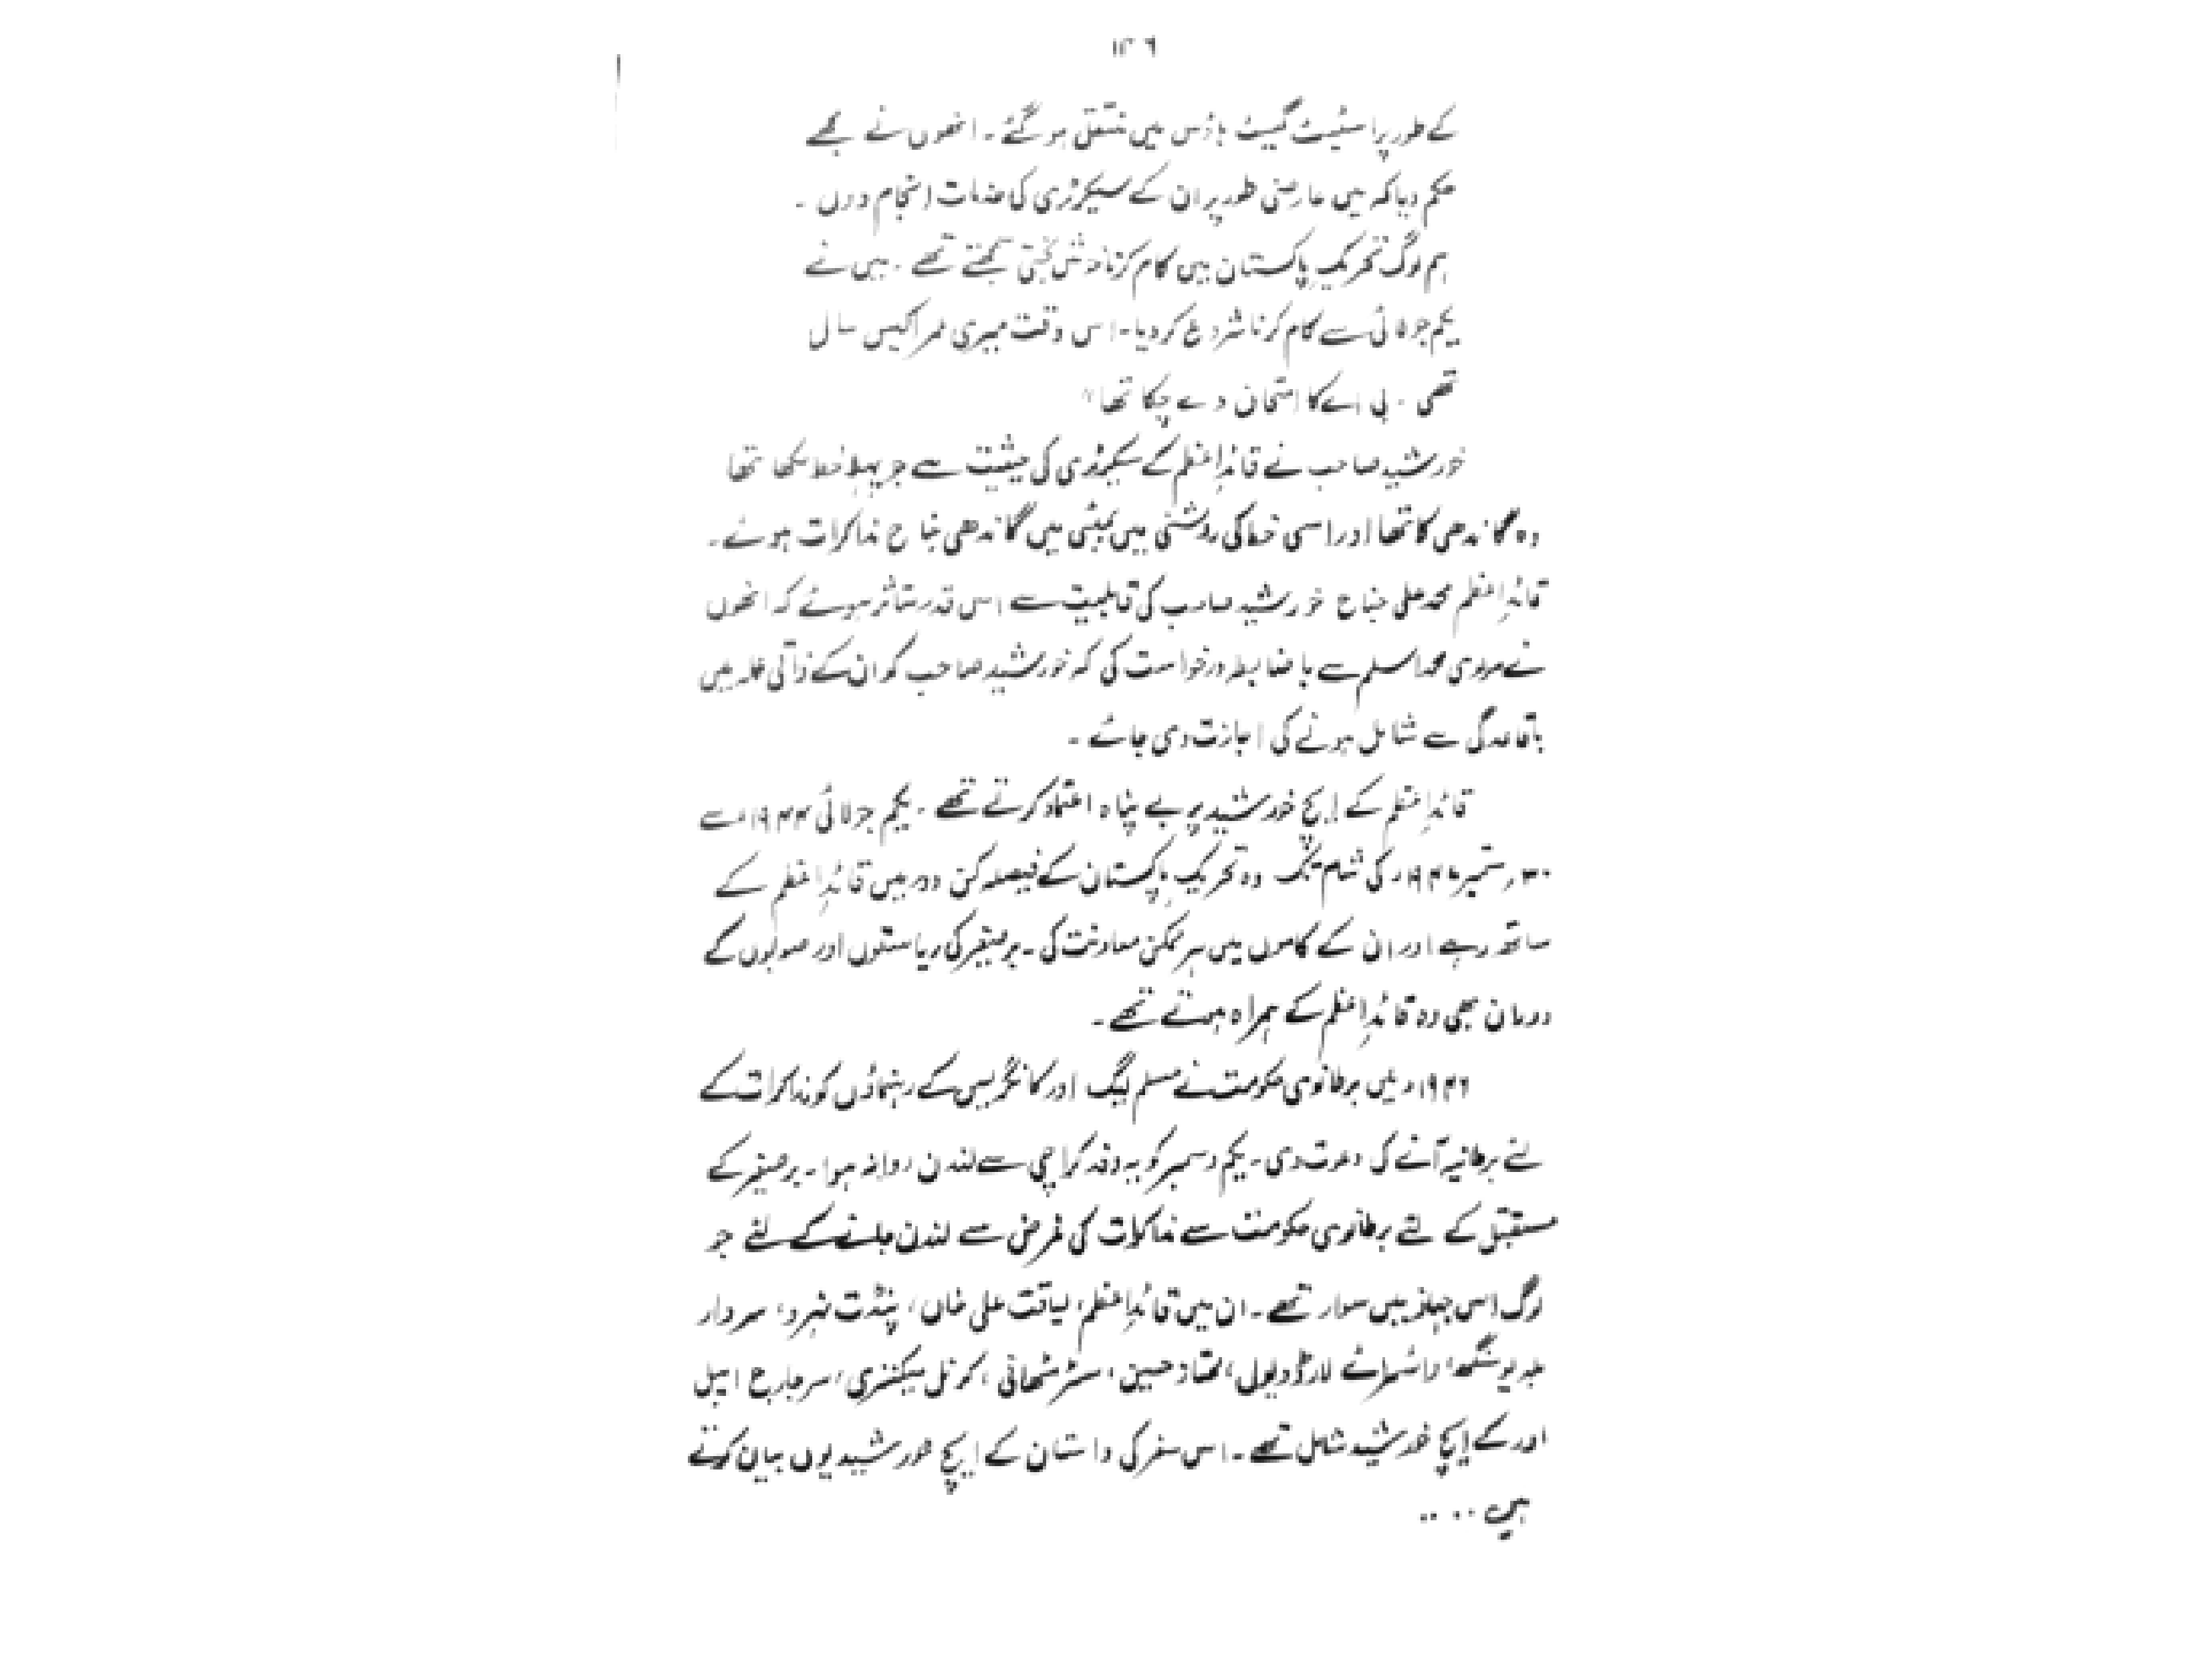 ۱۲۶
کے طور پر اسٹیٹ گیسٹ ہاؤس میں منتقل ہو گئے۔ انھوں نے مجھے
حکم دیا کہ میں عارضی طور پر ان کے سیکرٹری کی خدمات انجام دوں۔
ہم لوگ تحریکِ پاکستان میں کام کرنا خوش بختی سمجھتے تھے۔ میں نے
یکم جولائی سے کام کرنا شروع کر دیا۔ اس وقت میری عمر اکیس سال
تھی۔ بی اے کا امتحان دے چکا تھا"
خورشید صاحب نے قائدِاعظم کے سیکرٹری کی حیثیت سے جو پہلا خط لکھا تھا
وہ گاندھی کا تھا اور اسی خط کی روشنی میں بمبئی میں گاندھی جناح مذاکرات ہوئے۔
قائدِاعظم محمد علی جناح خورشید صاحب کی قابلیت سے اس قدر متاثر ہوئے کہ انھوں
نے مولوی محمد اسلم سے باضابطہ درخواست کی کہ خورشید صاحب کو ان کے ذاتی عملہ میں
باقاعدگی سے شامل ہونے کی اجازت دی جائے۔
قائدِاعظم کے ایچ خورشید پر بے پناہ اعتماد کرتے تھے۔ یکم جولائی ۱۹۴۴ء سے
۳۰ ستمبر ۱۹۴۷ء کی شام تک وہ تحریکِ پاکستان کے فیصلہ کن دور میں قائدِاعظم کے
ساتھ رہے اور ان کے کاموں میں ہر ممکن معاونت کی۔ برصغیر کی ریاستوں اور صوبوں کے
دوران بھی وہ قائدِاعظم کے ہمراہ ہوتے تھے۔
۱۹۴۶ء میں برطانوی حکومت نے مسلم لیگ اور کانگریس کے رہنماؤں کو مذاکرات کے
لئے برطانیہ آنے کی دعوت دی۔ یکم دسمبر کو یہ وفد کراچی سے لندن روانہ ہوا۔ برصغیر کے
مستقبل کے لئے برطانوی حکومت سے مذاکرات کی غرض سے لندن جانے کے لئے جو
لوگ اس جہاز میں سوار تھے۔ ان میں قائدِاعظم، لیاقت علی خاں، پنڈت نہرو، سردار
بلدیو سنگھ، وائسرائے لارڈ ویول، ممتاز حسین، کرنل میکنزی، سر جارج ایبل
اور کے ایچ خورشید شامل تھے۔ اس سفر کی داستان کے ایچ خورشید یوں بیان کرتے
ہیں ۔۔۔۔